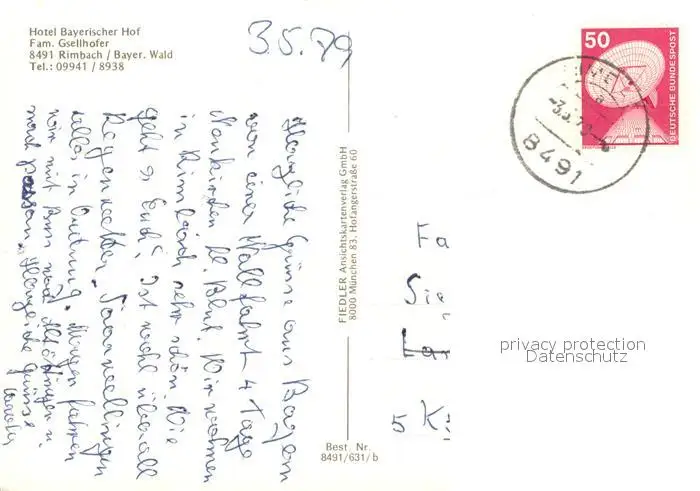 Hotel Bayerischer Hof
Fam. Gsellhofer
8491 Rimbach / Bayer. Wald
Tel.: 09941 / 8938
3.5.79
50
DEUTSCHE BUNDESPOST
8491
Herzliche Grüsse aus Bayern
von einer Wallfahrt 4 Tage
Neukirchen hl. Blut. Wir wohnen
in Rimbach sehr schön. Wie
geht es Euch? Ist wohl überall
Regenwetter.
alles in Ordnung. Morgen fahren
wir mit Bus nach Altöttingen u.
nach Passau. Herzliche Grüsse
FIEDLER Ansichtskartenverlag GmbH
8000 München 83, Hofangerstraße 60
Fa
Sie
5 K
privacy protection
Datenschutz
Best. Nr.
8491/631/b